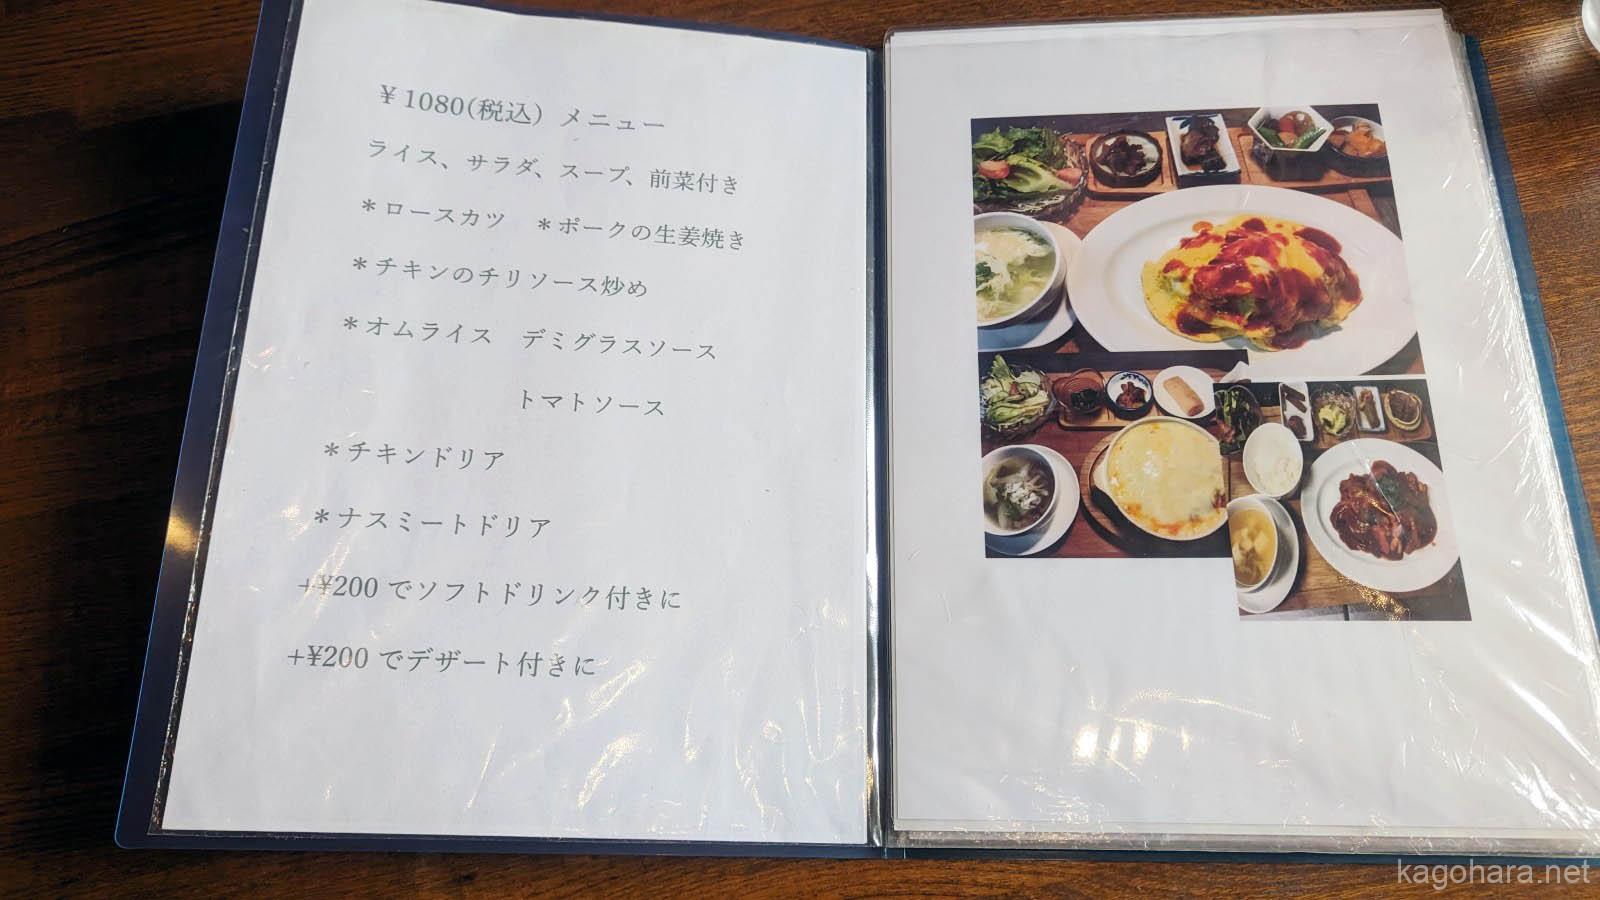 ¥1080(税込) メニュー
ライス、サラダ、スープ、前菜付き
＊ロースカツ ＊ポークの生姜焼き
＊チキンのチリソース炒め
＊オムライス デミグラスソース
トマトソース
＊チキンドリア
＊ナスミートドリア
+¥200 でソフトドリンク付きに
+¥200 でデザート付きに
kagohara.net